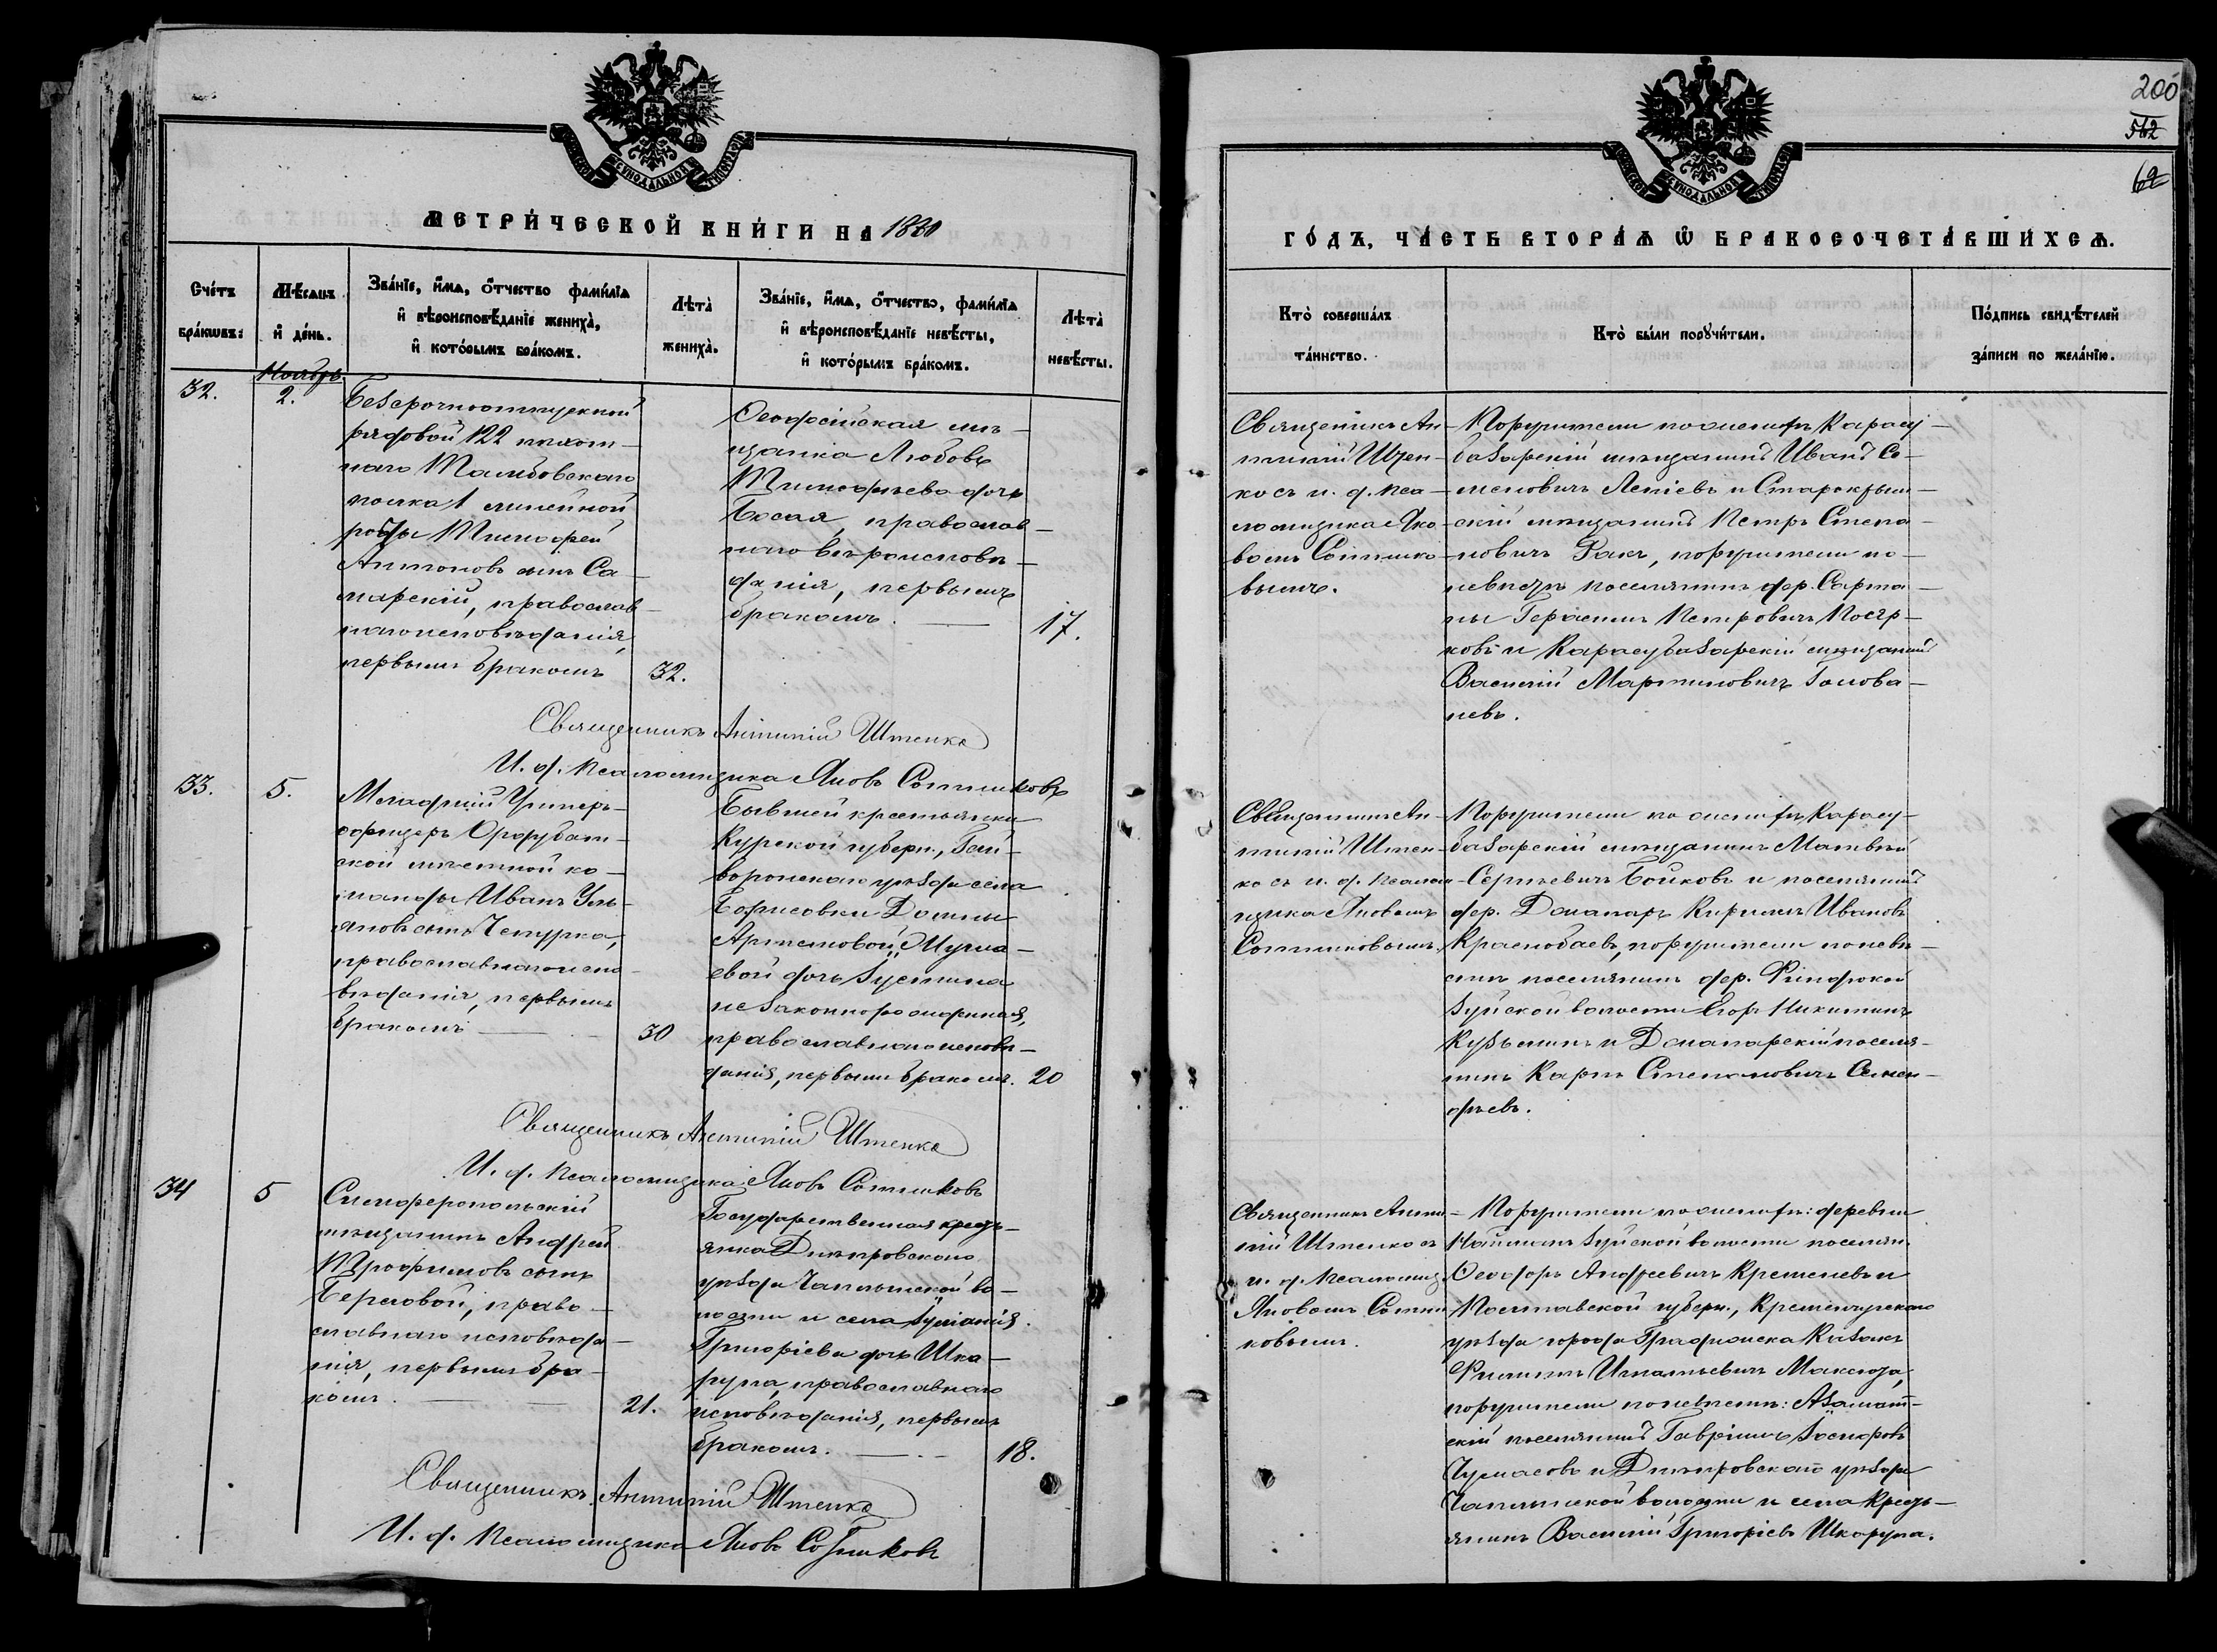 200
562
62
МЕТРИ́ЧЕСКОЙ КНИ́ГИ НА 1880
ГО́ДЪ, ЧА́СТЬ ВТОРА́Ѧ Ѿ БРАКОСОЧЕТА́ВШИХСѦ.
Сче́тъ бра́кѡвъ:
Мѣ́сѧцъ и҆ де́нь.
Зва́нїе, и҆́мѧ, о҆́тчество фами́лїѧ
и҆ вѣроисповѣ́данїе жениха̀,
и҆ кото́рымъ бра́комъ.
Лѣта̀ жениха̀.
Зва́нїе, и҆́мѧ, о҆́тчество, фами́лїѧ
и҆ вѣроисповѣ́данїе невѣ́сты,
и҆ кото́рымъ бра́комъ.
Лѣта̀ невѣ́сты.
Кто̀ соверша́лъ
та́инство.
Кто̀ бы́ли порꙋчи́тели.
По́дпись свидѣ́телей
за́писи по жела́нїю.
Ноябрь
32.
2.
Безсрочноотпускной
рядовой 122 пѣхот-
наго Тамбовскаго
полка 1 линейной
роты Тимофей
Антоновъ сынъ Са-
марскій, православ-
наго исповѣданія,
первымъ бракомъ
32.
Ѳеодосійская мѣ-
щанка Любовь
Тимофѣева дочь
Босая, православ-
наго вѣроисповѣ-
данія, первымъ
бракомъ.
17.
Священникъ Ан-
типій Штен-
ко съ и. д. пса-
ломщика Яко-
вомъ Сотнико-
вымъ.
Поручители по женихѣ Карасу-
базарскій мѣщанинъ Иванъ Се-
меновичъ и Старокрым-
скій мѣщанинъ Петръ Степа-
новичъ поручители по
невѣстѣ поселянинъ дер. Сарта-
ны Герасимъ Петровичъ
и Карасубазарскій мѣщанинъ
Василій Мартиновичъ Голова-
невъ.
Священникъ Антипій Штенко
И. д. Псаломщика Яковъ Сотниковъ
33.
5.
Младшій Унтеръ-
офицеръ
ской мѣстной ко-
манды Иванъ Улья-
новъ сынъ Чепурка,
православнаго испо-
вѣданія, первымъ
бракомъ
30
Бывшей крестьянки
Курской губерн., Гай-
воронскаго уѣзда села
Борисовки Домны
Артемовой
дочь Іустина
незаконнорожденная,
православнаго исповѣ-
данія, первымъ бракомъ.
20
Священникъ Ан-
типій Штен-
ко съ и. д. псалом-
щика Яковомъ
Сотниковымъ.
Поручители по женихѣ Карасу-
базарскій мѣщанинъ Матвѣй
Сергѣевичъ Бойковъ и поселянинъ
дер. Кириллъ Ивановъ
Краснобаевъ, поручители по невѣ-
стѣ поселянинъ дер.
Зуйской волости Егоръ Никитинъ
Кузьминъ и поселя-
нинъ Карпъ Степановичъ
Священникъ Антипій Штенко
И. д. Псаломщика Яковъ Сотниковъ
34
5
Симферопольскій
мѣщанинъ Андрей
Трофимовъ сынъ
Береговой, право-
славнаго исповѣда-
нія, первымъ бра-
комъ.
21.
Государственная кресть-
янка Днѣпровскаго
уѣзда Чаплынской во-
лости и села
Григоріева дочь Шка-
рупа, православнаго
исповѣданія, первымъ
бракомъ.
18.
Священникъ Анти-
пій Штенко съ
и. д. псаломщ.
Яковомъ Сотни-
ковымъ.
Поручители по женихѣ: деревни
Найманъ Зуйской волости поселян.
Ѳеодоръ Андреевичъ Кременевъ и
Полтавской губерн., Кременчугскаго
уѣзда города Градижска казакъ
Филиппъ Игнатьевичъ
поручители по невѣстѣ: Азамат-
скій поселянинъ Гавріилъ
и Днѣпровскаго уѣзда
Чаплынской волости и села кресть-
янинъ Василій Григоріевъ Шкарупа.
Священникъ Антипій Штенко
И. д. Псаломщика Яковъ Сотниковъ